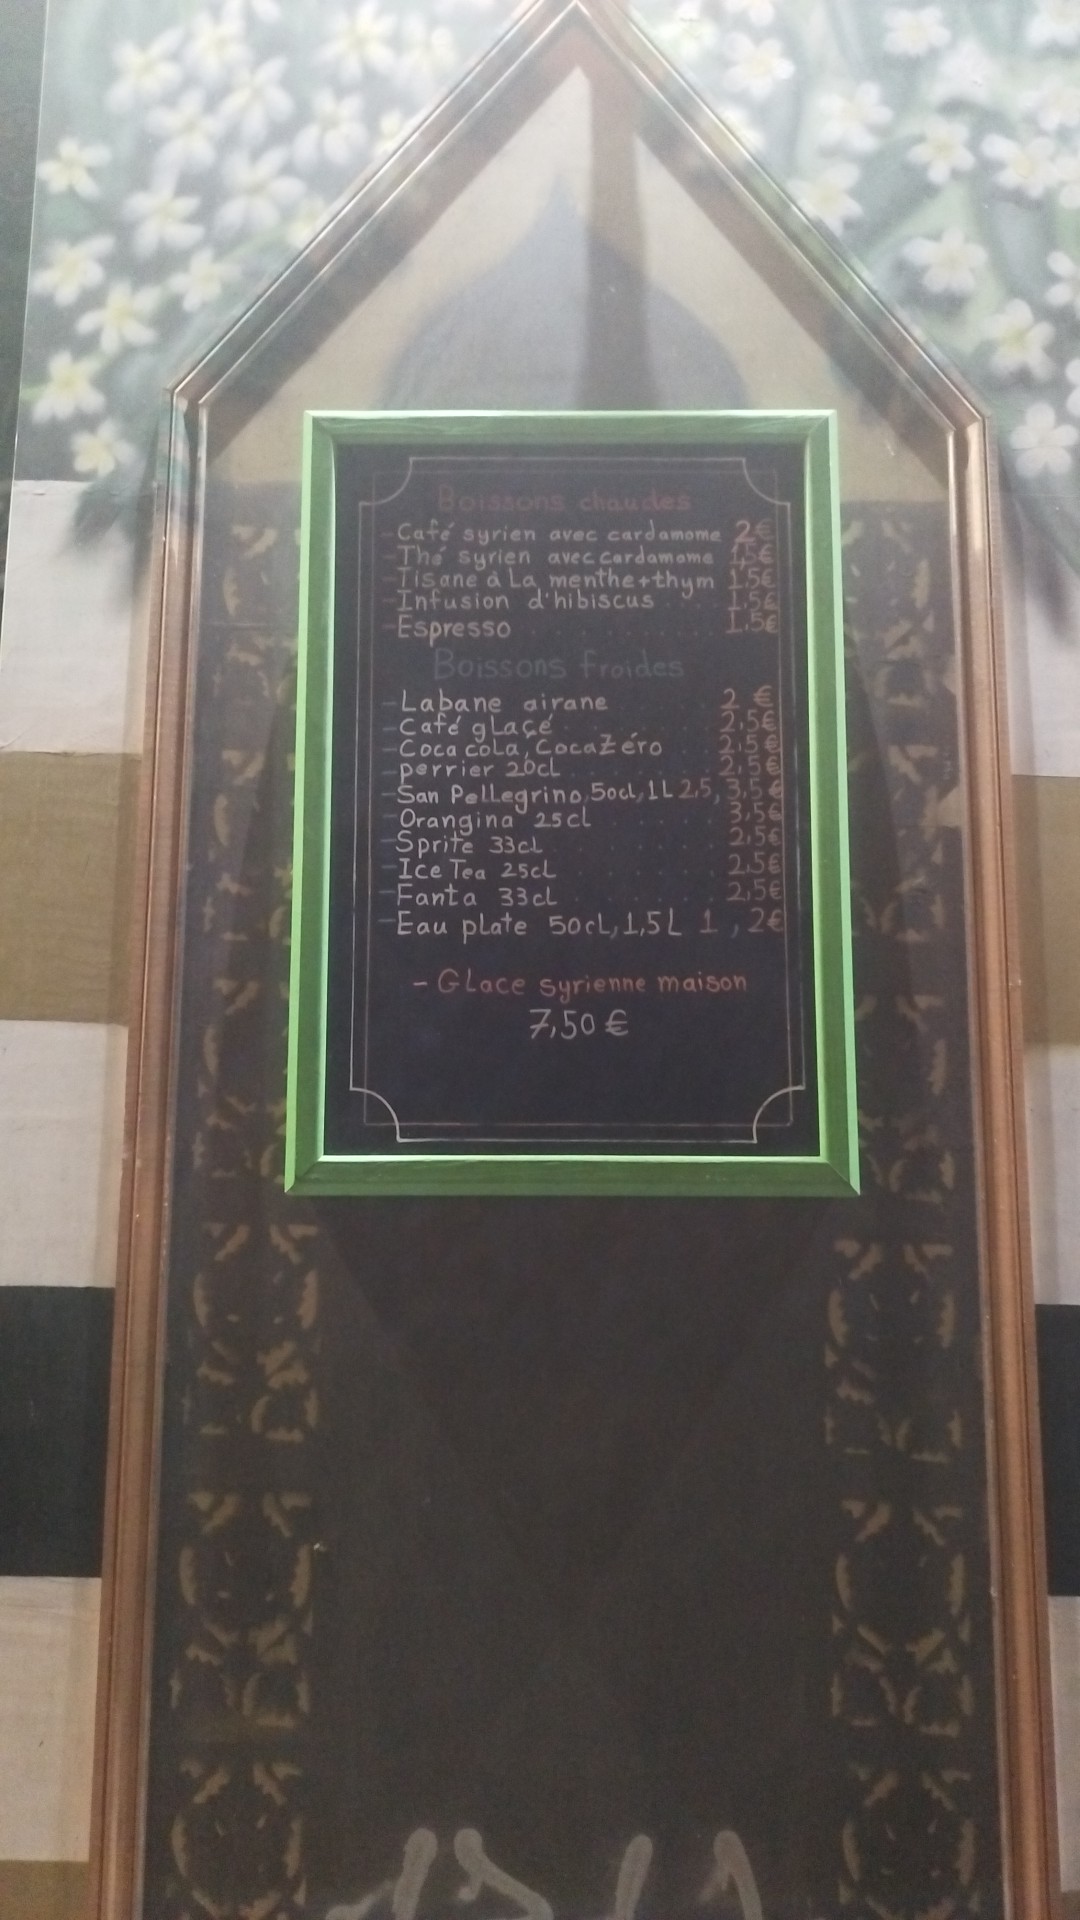 Boissons chaudes
- Café syrien avec cardamome 2€
- Thé syrien avec cardamome 1,5€
- Tisane à La menthe+thym 1,5€
- Infusion d'hibiscus .... 1,5€
- Espresso ........... 1,5€
Boissons froides
- Labane airane 2 €
- Café glaçé 2,5€
- Coca cola, Coca Zéro .. 2,5€
- perrier 20cl ........ 2,5€
- San Pellegrino, 50cl, 1L 2,5, 3,5€
- Orangina 25cl ...... 3,5€
- Sprite 33cl ........ 2,5€
- Ice Tea 25cl ....... 2,5€
- Fanta 33cl ....... 2,5€
- Eau plate 50cl, 1,5L 1 , 2€
- Glace syrienne maison
7,50 €